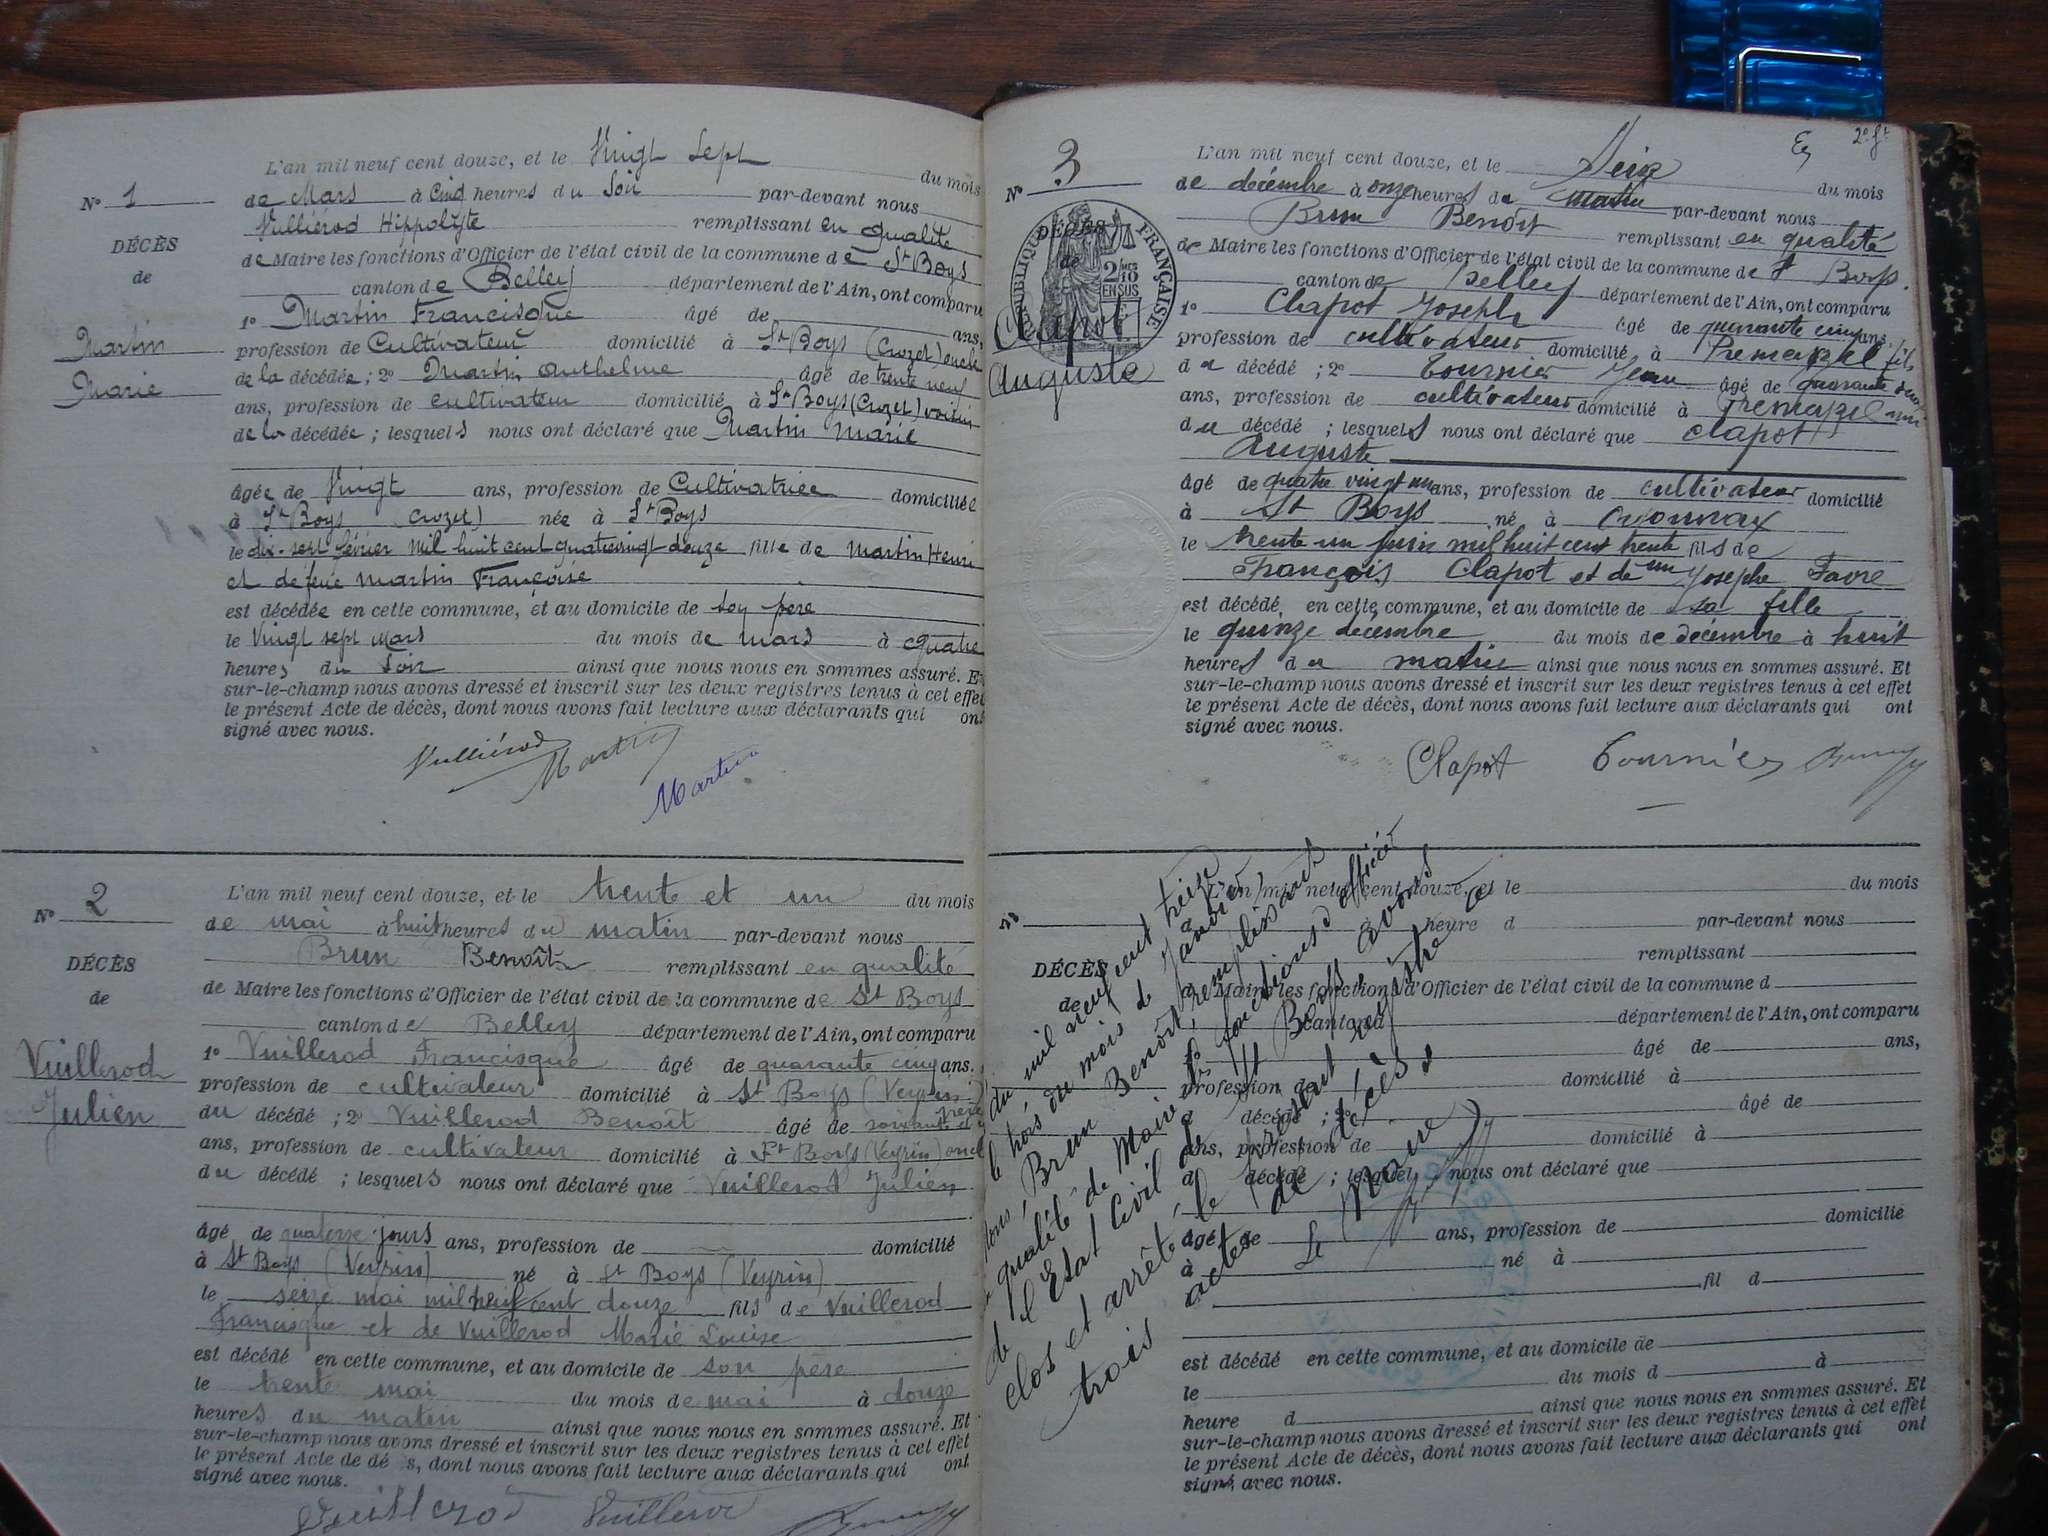 L'an mil neuf cent douze, et le Vingt Sept du mois
N° 1 de Mars à Cinq heures du Soir par-devant nous
Vulliérod Hippolyte remplissant en qualité
DÉCÈS de Maire les fonctions d'Officier de l'état civil de la commune de St Boys
de canton de Belley département de l'Ain, ont comparu
1° Martin Francisque âgé de ans,
Martin profession de Cultivateur domicilié à St Boys (Crozet) oncle
Marie de la décédée; 2° Martin Anthelme âgé de trente neuf
ans, profession de cultivateur domicilié à St Boys (Crozet) voisin
de la décédée; lesquels nous ont déclaré que Martin Marie
âgée de Vingt ans, profession de Cultivatrice domiciliée
à St Boys (Crozet) née à St Boys
le dix-sept février mil huit cent quatrevingt douze fille de Martin Henri
et de feue Martin Françoise
est décédée en cette commune, et au domicile de son père
le Vingt sept mars du mois de mars à quatre
heures du Soir ainsi que nous nous en sommes assuré. Et
sur-le-champ nous avons dressé et inscrit sur les deux registres tenus à cet effet
le présent Acte de décès, dont nous avons fait lecture aux déclarants qui ont
signé avec nous.
Vulliérod Martin Martin
L'an mil neuf cent douze, et le trente et un du mois
N° 2 de mai à huit heures du matin par-devant nous
Brun Benoît remplissant en qualité
DÉCÈS de Maire les fonctions d'Officier de l'état civil de la commune de St Boys
de canton de Belley département de l'Ain, ont comparu
Vuillerod 1° Vuillerod Francisque âgé de quarante cinq ans.
profession de cultivateur domicilié à St Boys (Veyrin) père
Julien du décédé; 2° Vuillerod Benoît âgé de soixante et
ans, profession de cultivateur domicilié à St Boys (Veyrin) oncle
du décédé; lesquels nous ont déclaré que Vuillerod Julien
âgé de quatorze jours ans, profession de domicilié
à St Boys (Veyrin) né à St Boys (Veyrin)
le seize mai mil neuf cent douze fils de Vuillerod
Francisque et de Vuillerod Marie Louise
est décédé en cette commune, et au domicile de son père
le trente mai du mois de mai à douze
heures du matin ainsi que nous nous en sommes assuré. Et
sur-le-champ nous avons dressé et inscrit sur les deux registres tenus à cet effet
le présent Acte de décès, dont nous avons fait lecture aux déclarants qui ont
signé avec nous.
Vuillerod Vuillerod
2e ft
L'an mil neuf cent douze, et le Seize du mois
N° 3 de décembre à onze heures du matin par-devant nous
Brun Benoît remplissant en qualité
DÉCÈS de Maire les fonctions d'Officier de l'état civil de la commune de St Boys.
de canton de Belley département de l'Ain, ont comparu
RÉPUBLIQUE FRANÇAISE
2/10 EN SUS
1° Clapot Joseph âgé de quarante cinq ans,
Clapot profession de cultivateur domicilié à Premayzel fils
Auguste du décédé; 2° Tournier Jean âgé de quarante deux
ans, profession de cultivateur domicilié à Premayzel ami
du décédé; lesquels nous ont déclaré que Clapot
Auguste
âgé de quatre vingt un ans, profession de cultivateur domicilié
à St Boys né à Oyonnax
le trente un juin mil huit cent trente un fils de
François Clapot et de Josephe Favre
est décédé en cette commune, et au domicile de sa fille
le quinze décembre du mois de décembre à huit
heures du matin ainsi que nous nous en sommes assuré. Et
sur-le-champ nous avons dressé et inscrit sur les deux registres tenus à cet effet
le présent Acte de décès, dont nous avons fait lecture aux déclarants qui ont
signé avec nous.
Clapot Tournier
L'an mil neuf cent douze, et le du mois
N° heure d par-devant nous
remplissant
DÉCÈS d Maire les fonctions d'Officier de l'état civil de la commune d
de canton d département de l'Ain, ont comparu
1° âgé de ans,
profession de domicilié à
d décédé; 2° âgé de
ans, profession de domicilié à
d décédé; lesquel nous ont déclaré que
âgé de ans, profession de domicilié
à né à
le fil d
est décédé en cette commune, et au domicile de
le du mois d à
heure d ainsi que nous nous en sommes assuré. Et
sur-le-champ nous avons dressé et inscrit sur les deux registres tenus à cet effet
le présent Acte de décès, dont nous avons fait lecture aux déclarants qui ont
signé avec nous.
mil neuf cent treize
le trois du mois de Janvier
nous, Brun Benoît, remplissant
en qualité de Maire les fonctions d'officier
de l'Etat Civil de St Boys avons
clos et arrêté le présent registre à
trois actes de décès.
Le Maire